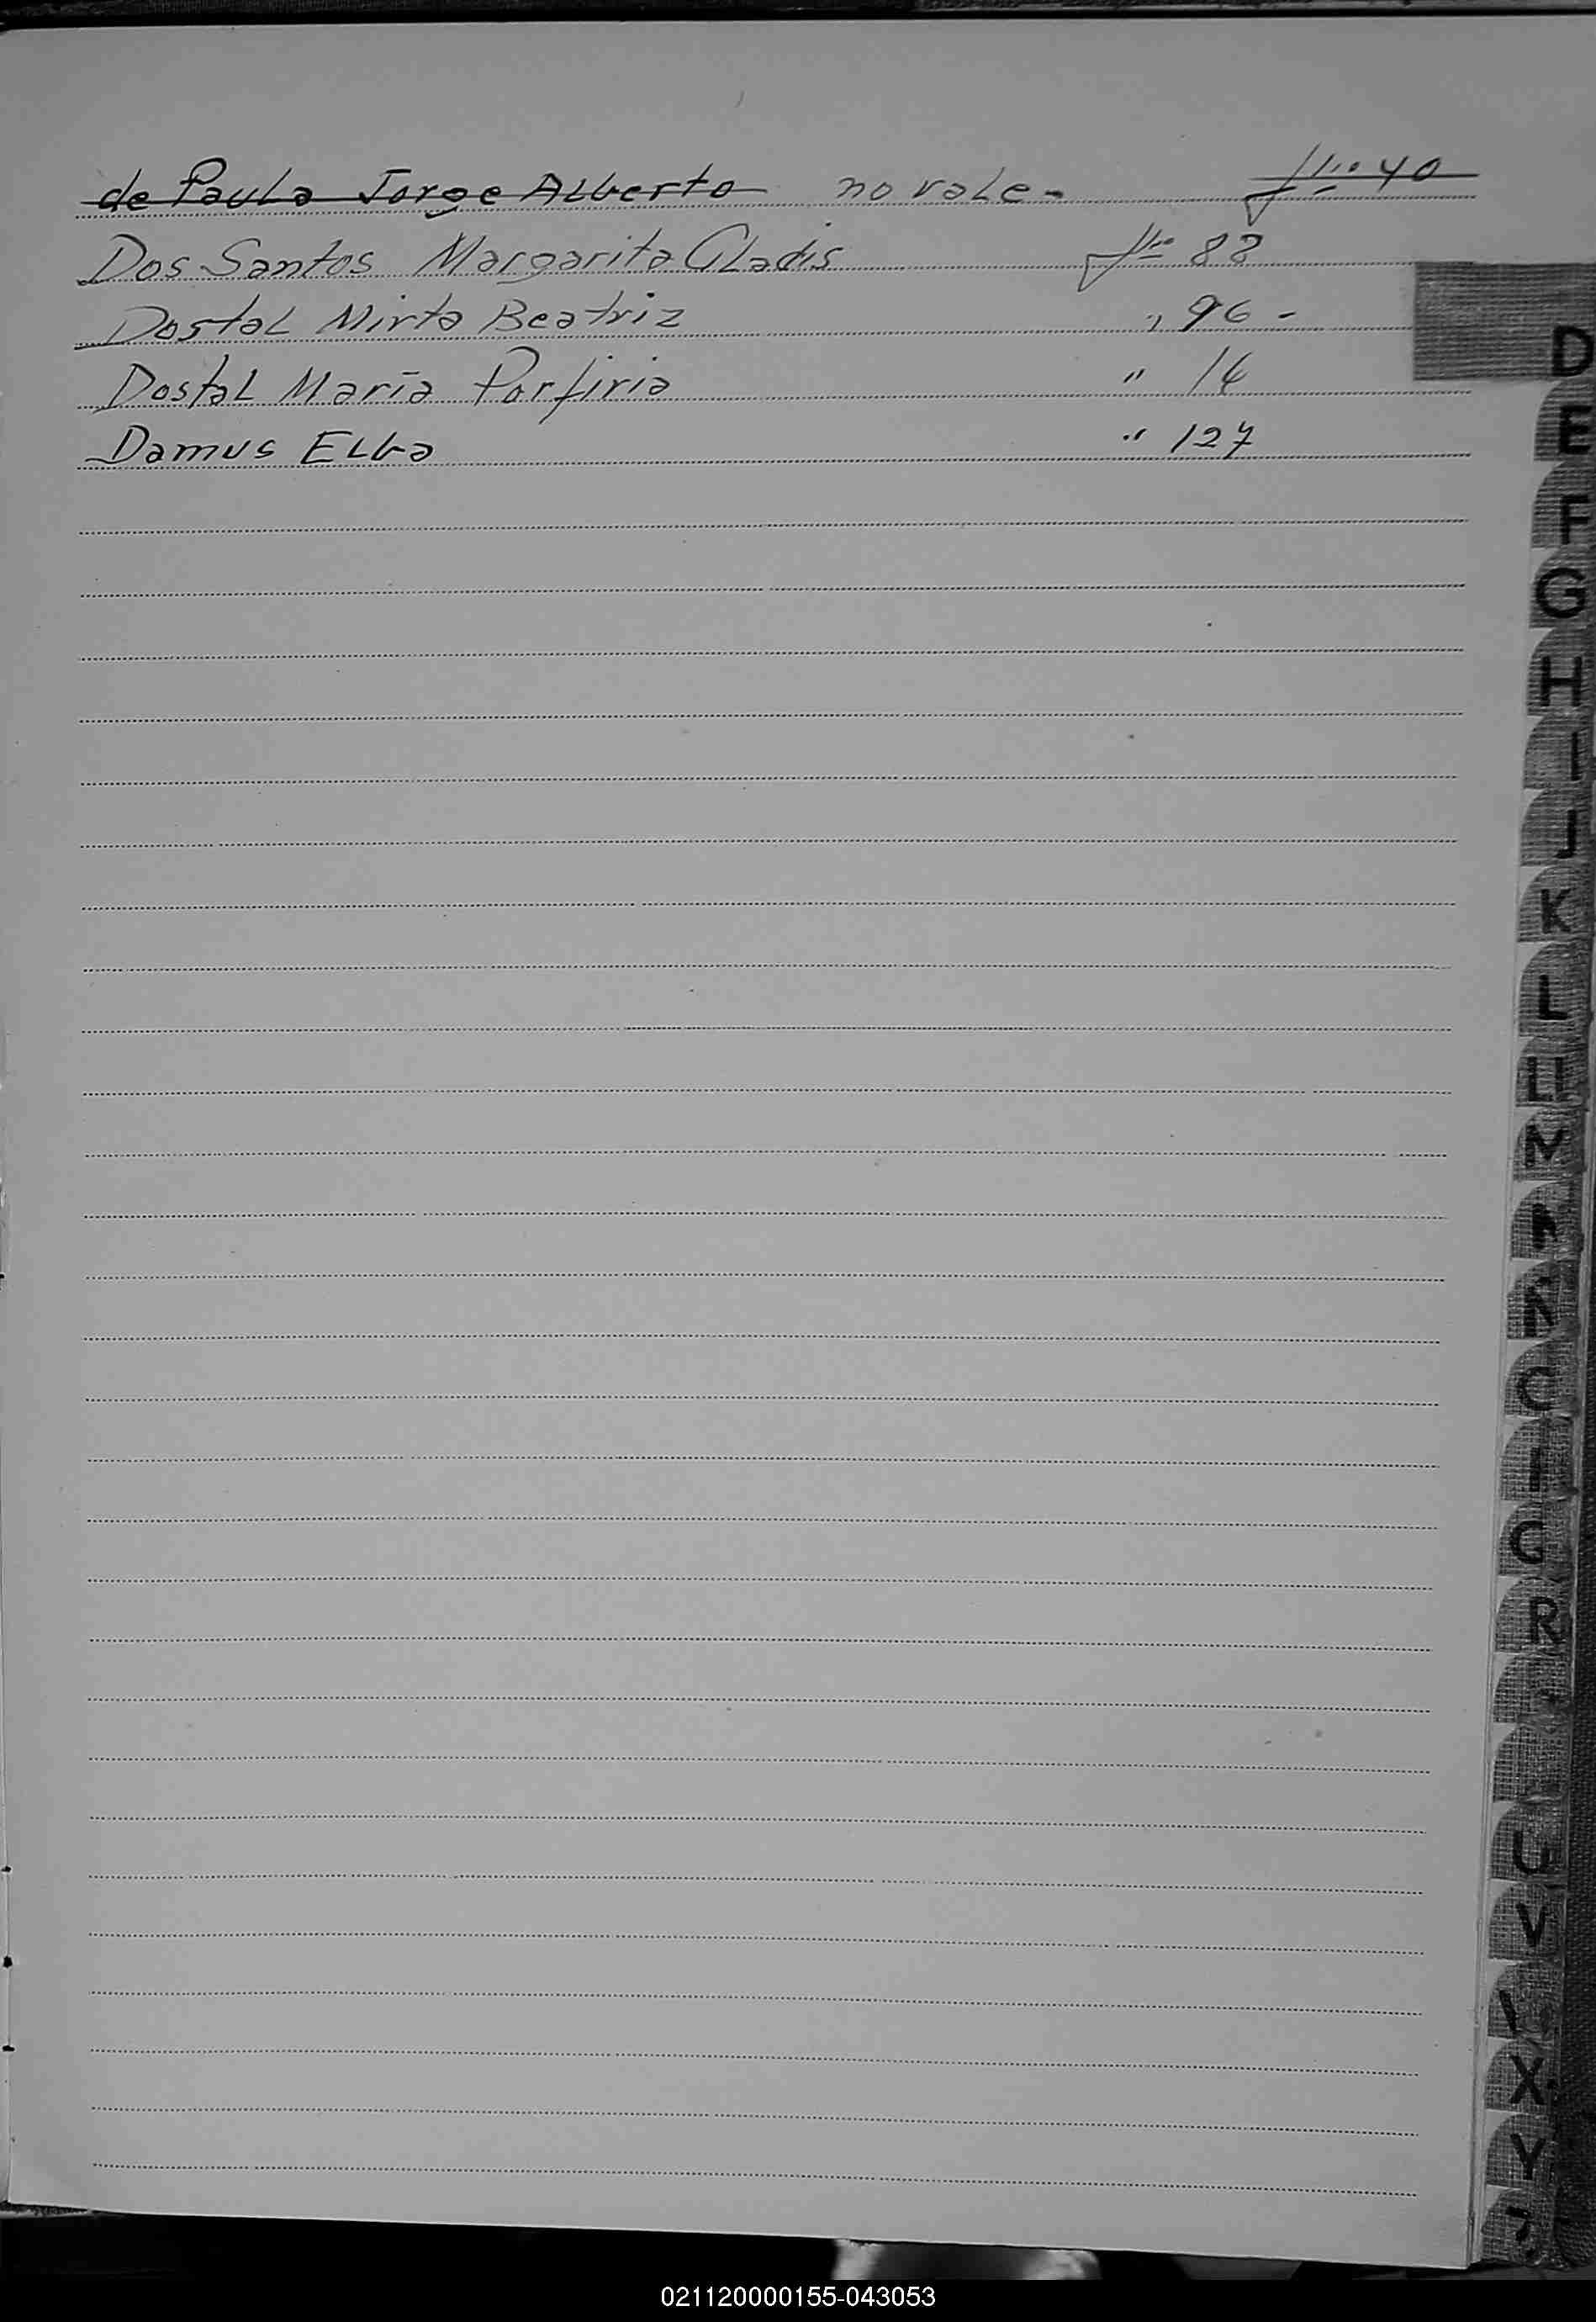 de Paula Jorge Alberto no vale - flio 40
Dos Santos Margarita Gladis flio 88
Dostal Mirta Beatriz " 96 -
Dostal María Porfiria " 14
Damus Elba " 127
D
E
F
G
H
I
J
K
L
LL
M
R
U
V
X
Y
021120000155-043053